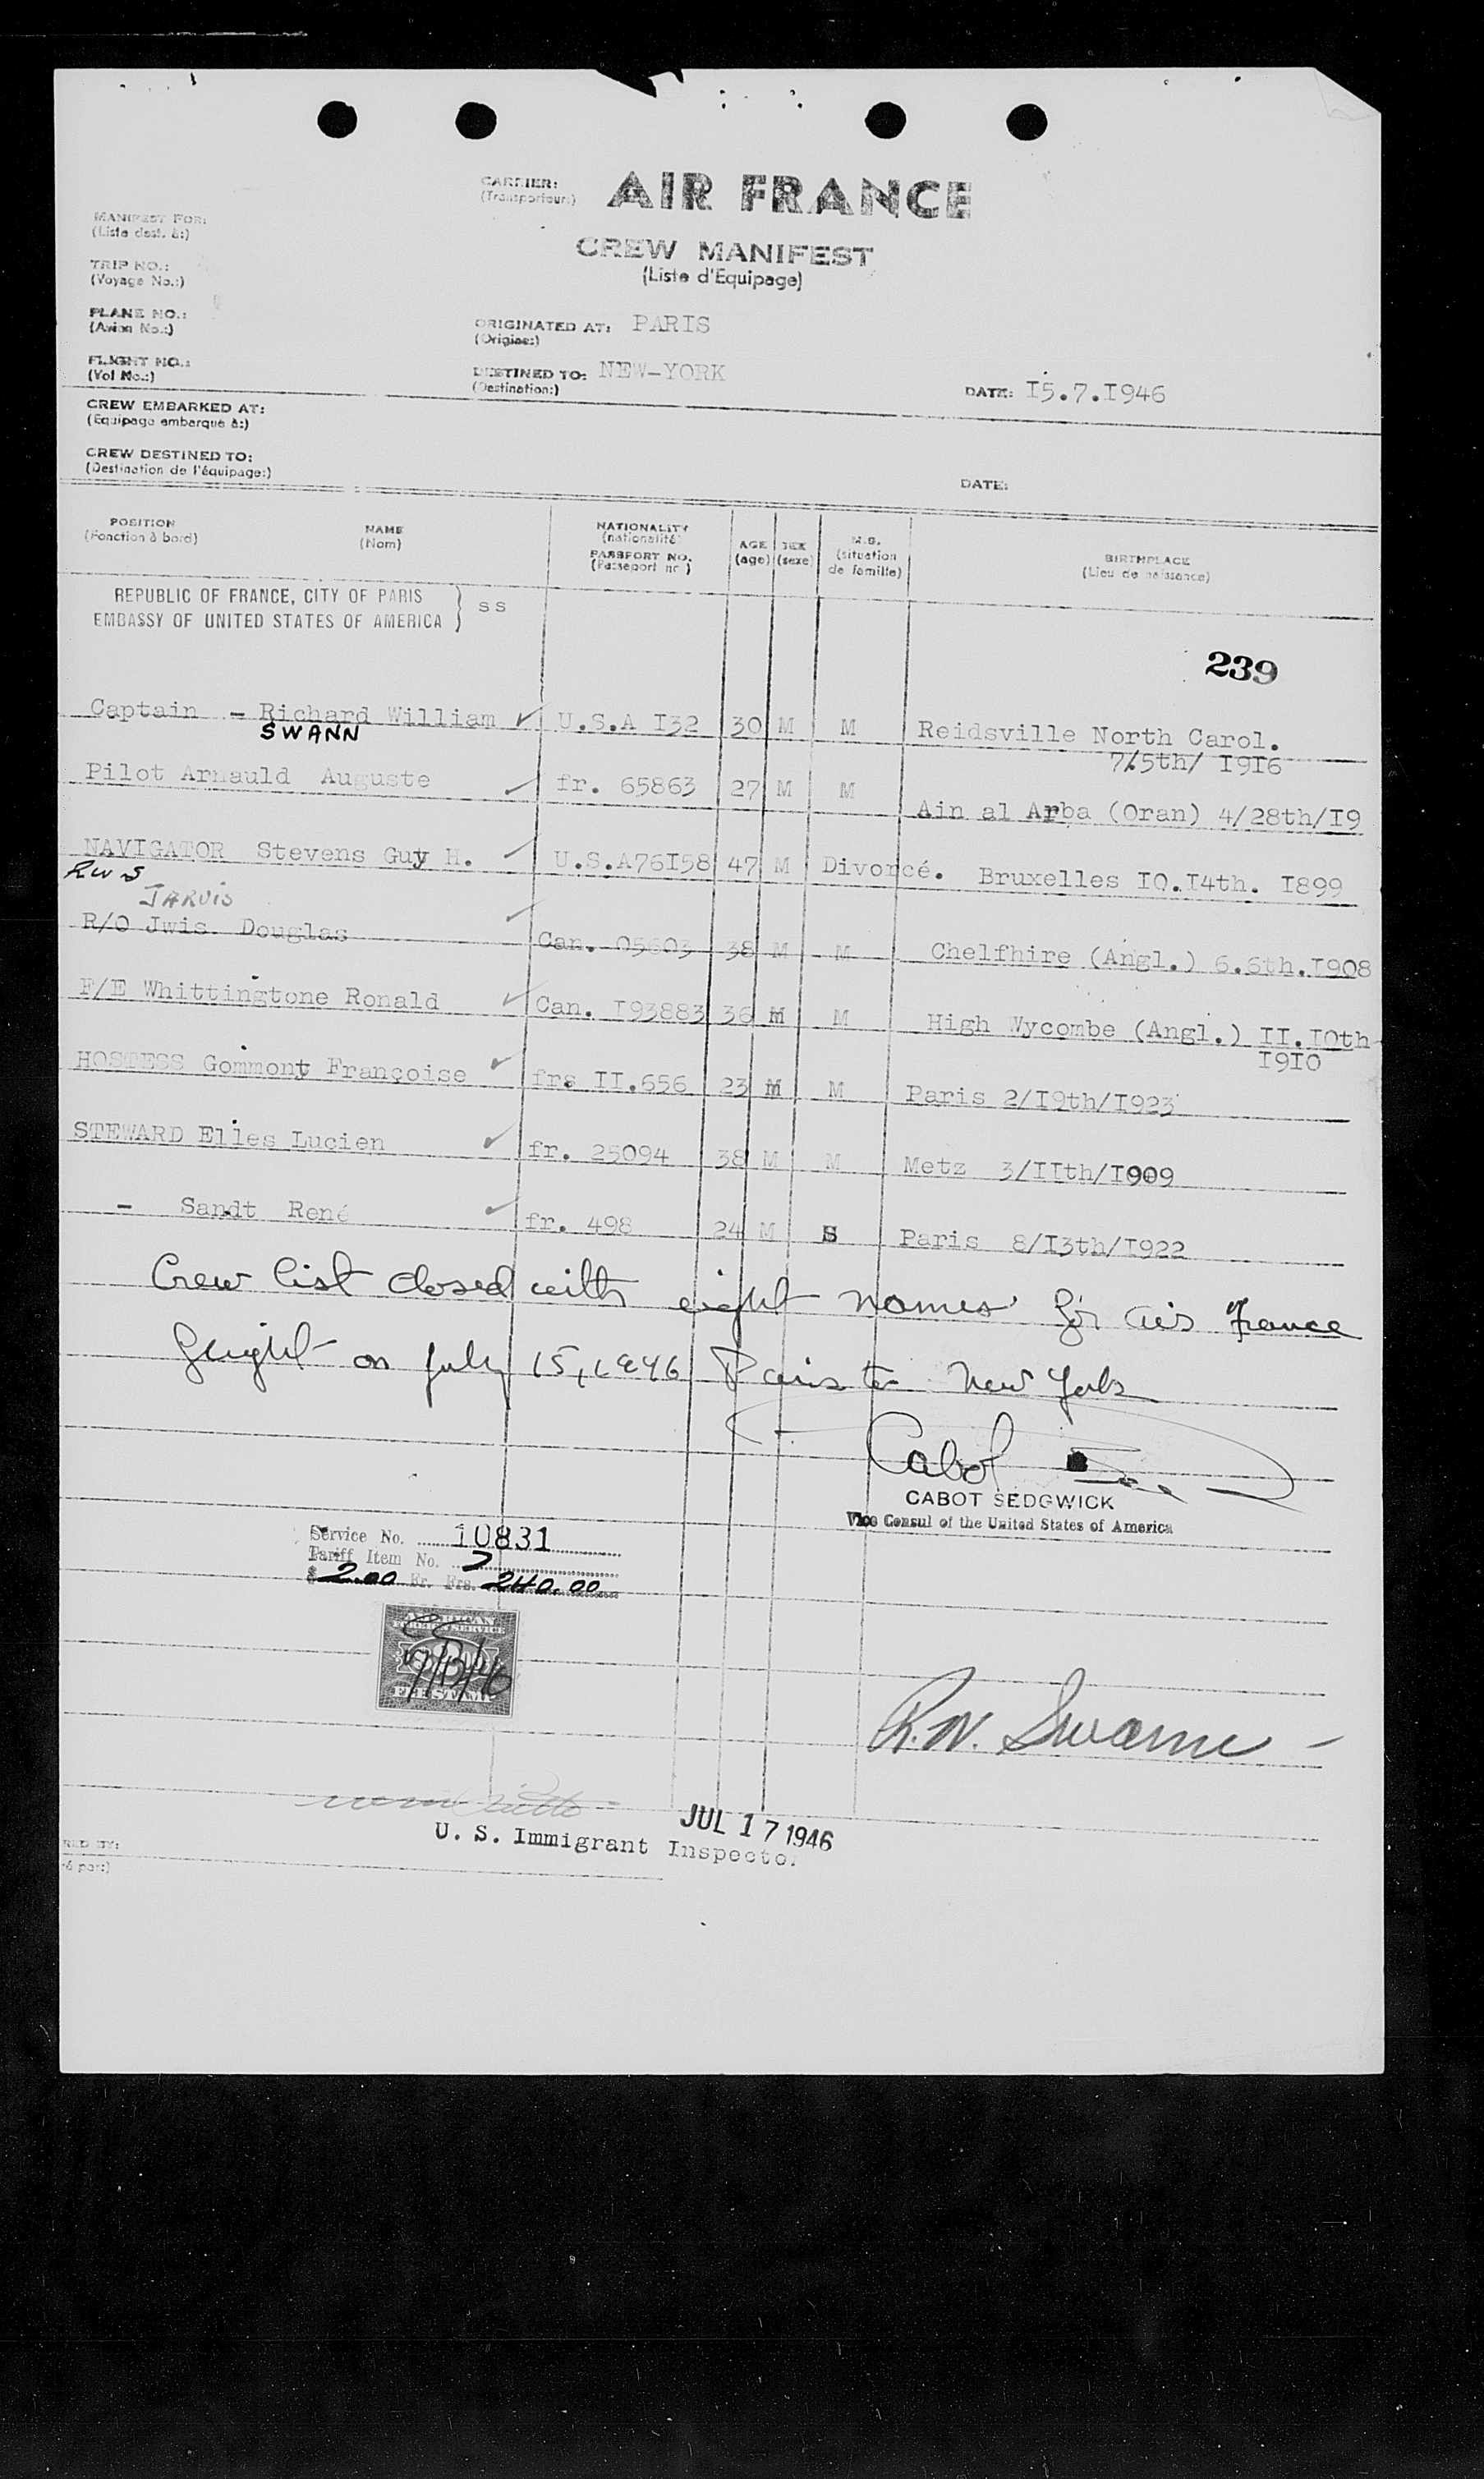 CARRIER: AIR FRANCE
(Transporteur:)
MANIFEST FOR:
(Liste dest. à:)
CREW MANIFEST
(Liste d'Equipage)
TRIP NO.:
(Voyage No.:)
PLANE NO.:
(Avion No.:)
ORIGINATED AT: PARIS
(Origine:)
FLIGHT NO.:
(Vol No.:)
DESTINED TO: NEW-YORK
(Destination:)
DATE: I5.7.I946
CREW EMBARKED AT:
(Equipage embarqué à:)
CREW DESTINED TO:
(Destination de l'équipage:)
DATE:
POSITION NAME NATIONALITY AGE SEX M.S. BIRTHPLACE
(Fonction à bord) (Nom) (nationalité) (age) (sexe) (situation de famille) (Lieu de naissance)
PASSPORT NO.
(Passeport nr )
REPUBLIC OF FRANCE, CITY OF PARIS
EMBASSY OF UNITED STATES OF AMERICA } SS
239
Captain - Richard William U.S.A I32 30 M M Reidsville North Carol.
SWANN 7/5th/ I9I6
Pilot Arnauld Auguste fr. 65863 27 M M Ain al Arba (Oran) 4/28th/I9
NAVIGATOR Stevens Guy H. U.S.A76I58 47 M Divorcé. Bruxelles IO.I4th. I899
RWS
JARVIS
R/O Jwis. Douglas Can. 05603 38 M M Chelfhire (Angl.) 6.6th.I908
F/E Whittingtone Ronald Can. I93883 36 M M High Wycombe (Angl.) II.IOth
I9IO
HOSTESS Gommont Françoise frs II.656 23 M M Paris 2/I9th/I923
STEWARD Elles Lucien fr. 25094 38 M M Metz 3/IIth/I909
- Sandt René fr. 498 24 M S Paris 8/I3th/I922
Crew list closed with eight names for air france
flight on july 15, 1946 Paris to New York
Cabot
CABOT SEDGWICK
Vice Consul of the United States of America
Service No. 10831
Tariff Item No. 7
$ 2.00 Fr. Frs. 240.00
AMERICAN
FOREIGN SERVICE
7/15/46
FEE STAMP
R.W. Swann
JUL 17 1946
U. S. Immigrant Inspector
RED BY:
ré par:)